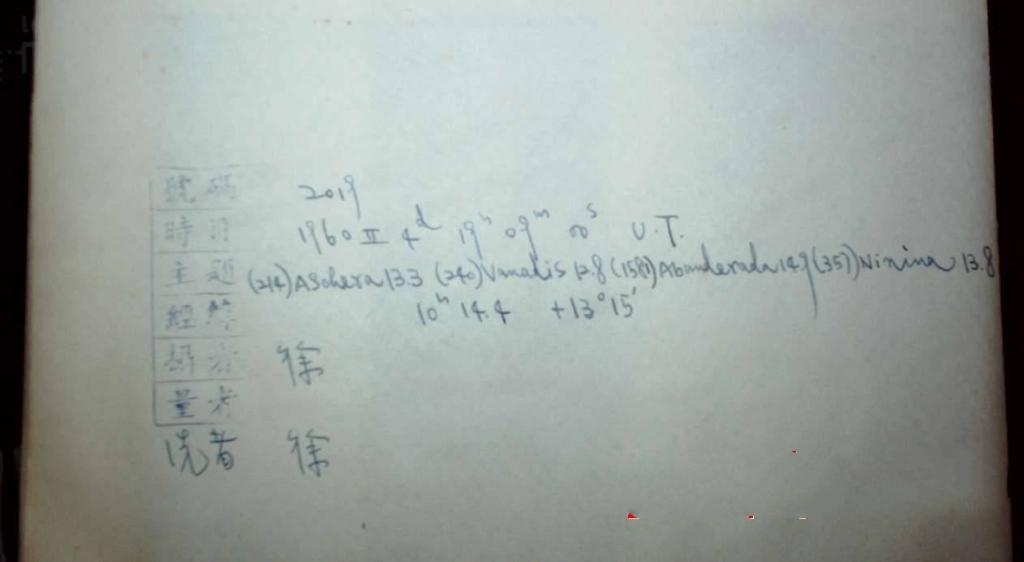 號碼 2019
時日 1960 II 4ᵈ 19ʰ 09ᵐ 00ˢ U.T.
主題 (214) Aschera 13.3 (240) Vanadis 12.8 (1581) Abanderada 14.9 (357) Ninina 13.8
經緯 10ʰ 14.4 +13°15'
攝者 徐
量者
洗者 徐